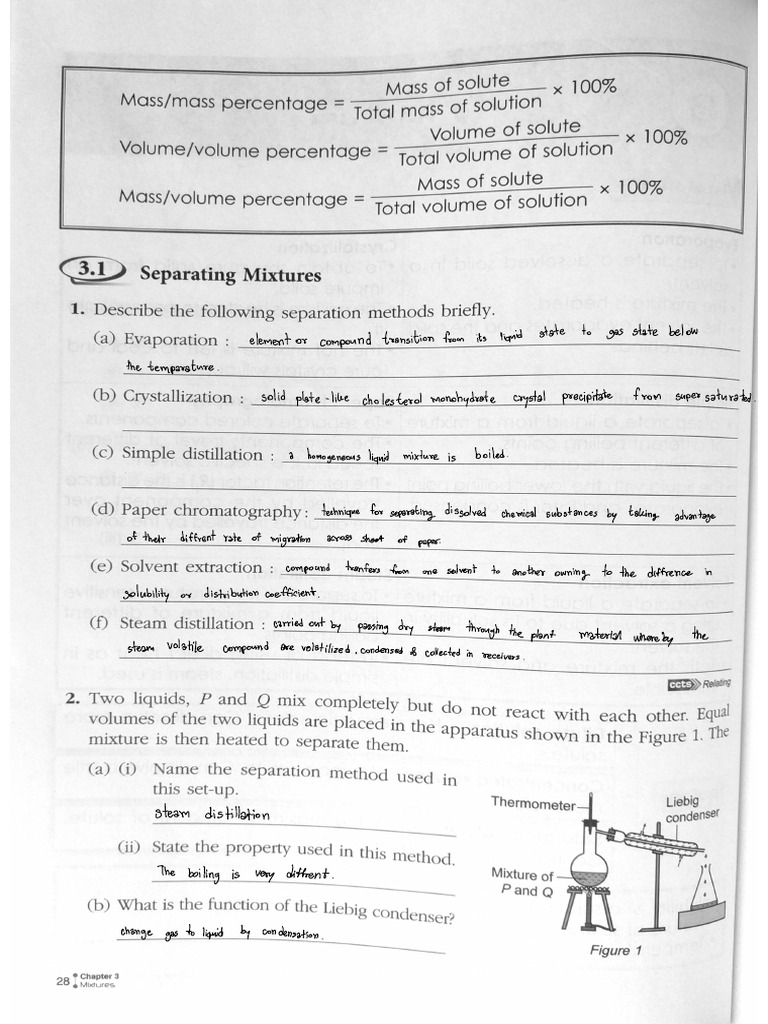 Mass/mass percentage = Mass of solute / Total mass of solution × 100%
Volume/volume percentage = Volume of solute / Total volume of solution × 100%
Mass/volume percentage = Mass of solute / Total volume of solution × 100%
3.1 Separating Mixtures
1. Describe the following separation methods briefly.
(a) Evaporation : element or compound transition from its liquid state to gas state below
the temparature.
(b) Crystallization : solid plate-like cholesterol monohydrate crystal precipitate from super saturated.
(c) Simple distillation : a homogeneous liquid mixture is boiled.
(d) Paper chromatography : technique for separating dissolved chemical substances by taking advantage
of their diffrent rate of migration across sheet of paper.
(e) Solvent extraction : compound tranfers from one solvent to another owning to the diffrence in
solubility or distribution coefficient.
(f) Steam distillation : carried out by passing dry steam through the plant material whereby the
steam volatile compound are volatilized, condensed & collected in receivers.
ccts Relating
2. Two liquids, P and Q mix completely but do not react with each other. Equal
volumes of the two liquids are placed in the apparatus shown in the Figure 1. The
mixture is then heated to separate them.
(a) (i) Name the separation method used in
this set-up.
steam distillation
(ii) State the property used in this method.
The boiling is very diffrent.
(b) What is the function of the Liebig condenser?
change gas to liquid by condensation.
Thermometer
Liebig
condenser
Mixture of
P and Q
Figure 1
28 Chapter 3
Mixtures